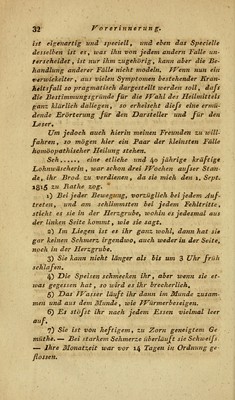 32 Vorerinnerung.
ist eigenartig und speciell, und eben das Specielle
desselben ist es, was ihn von jedem andern Falle un-
terscheidet, ist nur ihm zugehörig, kann aber die Be-
handlung anderer Fälle nicht modeln. Wenn nun ein
verwickelter, aus vielen Symptomen bestehender Kran-
heitsfall so pragmatisch dargestellt werden soll, daſs
die Bestimmungsgründe für die Wahl des Heilmittels
ganz klärlich daliegen, so erheischt dieſs eine ermü-
dende Erörterung für den Darsteller und für den
Leser.
Um jedoch auch hierin meinen Freunden zu will-
fahren, so mögen hier ein Paar der kleinsten Fälle
homöopathischer Heilung stehen.
Sch......, eine etliche und 40 jährige kräftige
Lohnwäscherin, war schon drei Wochen auſser Stan-
de, ihr Brod zu verdienen, da sie mich den 1. Sept.
1815 zu Rathe zog.
1) Bei jeder Bewegung, vorzüglich bei jedem Auf-
treten, und am schlimmsten bei jedem Fehltritte,
sticht es sie in der Herzgrube, wohin es jedesmal aus
der linken Seite kommt, wie sie sagt.
2) Im Liegen ist es ihr ganz wohl, dann hat sie
gar keinen Schmerz irgendwo, auch weder in der Seite,
noch in der Herzgrube.
3) Sie kann nicht länger als bis um 3 Uhr früh
schlafen.
4) Die Speisen schmecken ihr, aber wenn sie et-
was gegessen hat, so wird es ihr brecherlich.
5) Das Wasser läuft ihr dann im Munde zusam-
men und aus dem Munde, wie Würmerbeseigen.
6) Es stöſst ihr nach jedem Essen vielmal leer
auf.
7) Sie ist von heftigem, zu Zorn geneigtem Ge-
müthe. — Bei starkem Schmerze überläuft sie Schweiſs
— Ihre Monatzeit war vor 14 Tagen in Ordnung ge-
flossen.